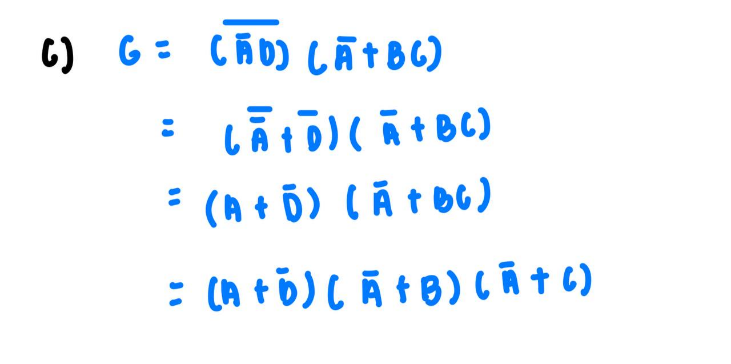 c) G = (\overline{\overline{A}D}) (\overline{A} + BC)
= (\overline{\overline{A}} + \overline{D}) (\overline{A} + BC)
= (A + \overline{D}) (\overline{A} + BC)
= (A + \overline{D}) (\overline{A} + B) (\overline{A} + C)